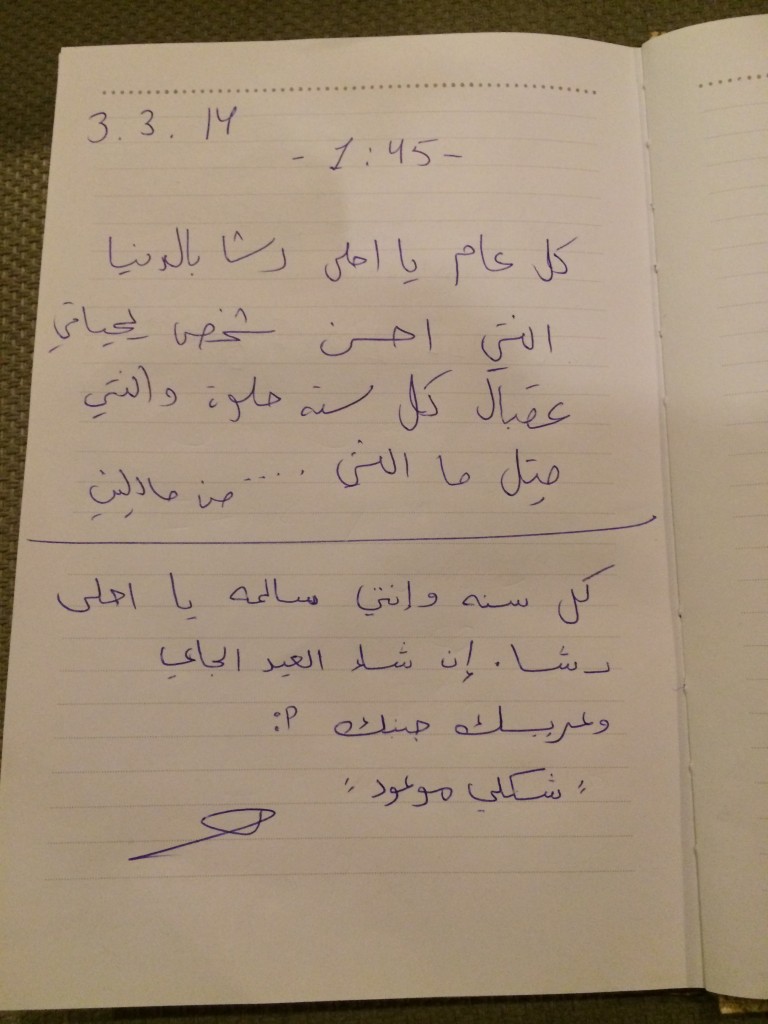 3.3.14
- 1:45 -
كل عام يا احلى رشا بالدنيا
انتي احسن شخص بحياتي
عقبال كل سنه حلوة وانتي
متل ما انتي ..... من مادلين
كل سنه وانتي سالمه يا احلى
رشا. إن شاء العيد الجاي
وعريسك جنبك :P
"شكلي موعود"